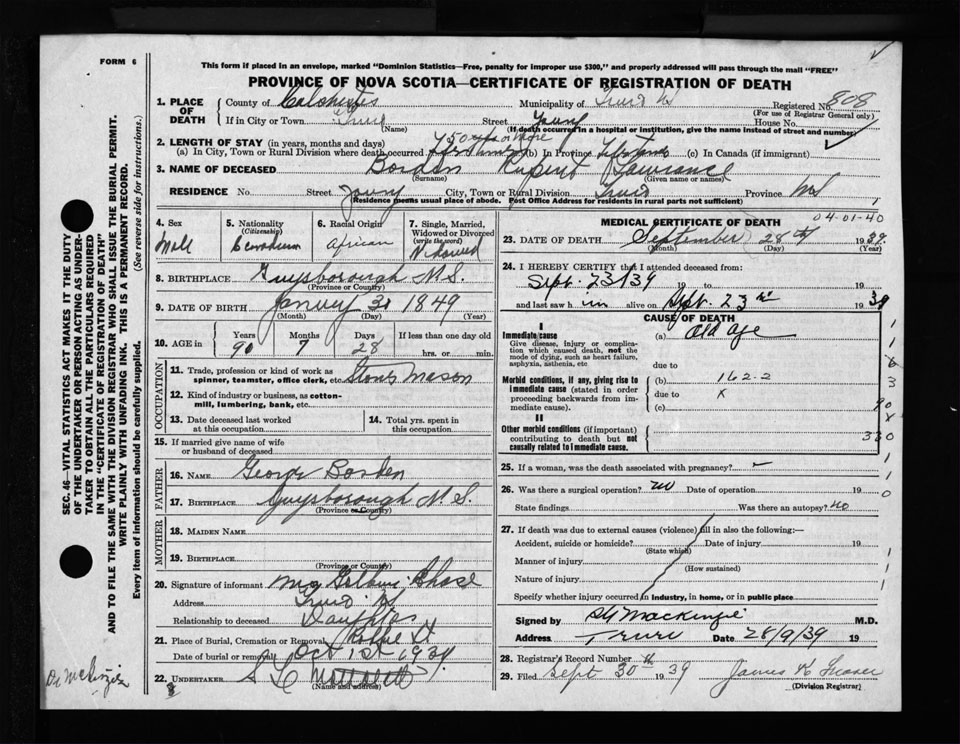 FORM 6
This form if placed in an envelope, marked "Dominion Statistics—Free, penalty for improper use $300," and properly addressed will pass through the mail "FREE"
PROVINCE OF NOVA SCOTIA—CERTIFICATE OF REGISTRATION OF DEATH
1. PLACE OF DEATH
County of Colchester Municipality of Truro Registered No. 808
(For use of Registrar General only)
If in City or Town Truro Street Young House No.
(Name) (If death occurred in a hospital or institution, give the name instead of street and number)
2. LENGTH OF STAY (in years, months and days) 50 yrs or more
(a) In City, Town or Rural Division where death occurred (b) In Province Lifetime (c) In Canada (if immigrant)
3. NAME OF DECEASED Borden Rupert Lawrance
(Surname) (Given name or names)
RESIDENCE No. Street Young City, Town or Rural Division Truro Province NS
(Residence means usual place of abode. Post Office Address for residents in rural parts not sufficient)
4. Sex
Male
5. Nationality
(Citizenship)
Canadian
6. Racial Origin
African
7. Single, Married, Widowed or Divorced
(write the word)
Widowed
8. BIRTHPLACE Guysborough N.S.
(Province or Country)
9. DATE OF BIRTH 1849
(Month) (Day) (Year)
10. AGE in Years Months Days If less than one day old
90 7 28 hrs. or min.
OCCUPATION
11. Trade, profession or kind of work as spinner, teamster, office clerk, etc. Stone Mason
12. Kind of industry or business, as cotton-mill, lumbering, bank, etc.
13. Date deceased last worked at this occupation
14. Total yrs. spent in this occupation
15. If married give name of wife or husband of deceased
FATHER
16. NAME George Borden
17. BIRTHPLACE Guysborough N.S.
(Province or Country)
MOTHER
18. MAIDEN NAME
19. BIRTHPLACE
(Province or Country)
20. Signature of informant Chase
Address Truro NS
Relationship to deceased Daughter
21. Place of Burial, Cremation or Removal
Date of burial or removal Oct 1st 1939
22. UNDERTAKER
(Name and address)
MEDICAL CERTIFICATE OF DEATH
04-01-40
23. DATE OF DEATH September 28th 1939
(Month) (Day) (Year)
24. I HEREBY CERTIFY that I attended deceased from:
Sept. 23/39 19 to 19
and last saw him alive on Sept. 23rd 1939
CAUSE OF DEATH
I
Immediate cause
Give disease, injury or complication which caused death, not the mode of dying, such as heart failure, asphyxia, asthenia, etc
(a) Old Age
due to
Morbid conditions, if any, giving rise to immediate cause (stated in order proceeding backwards from immediate cause).
(b) 162-2
due to
(c)
II
Other morbid conditions (if important) contributing to death but not causally related to immediate cause.
330
25. If a woman, was the death associated with pregnancy?
26. Was there a surgical operation? no Date of operation 19
State findings Was there an autopsy? no
27. If death was due to external causes (violence) fill in also the following:—
Accident, suicide or homicide? Date of injury 19
(State which)
Manner of injury
(How sustained)
Nature of injury
Specify whether injury occurred in industry, in home, or in public place
Signed by MacKenzie M.D.
Address Truro Date 28/9/39 19
28. Registrar's Record Number
29. Filed Sept 30th 1939 James Fraser
(Division Registrar)
SEC. 46—VITAL STATISTICS ACT MAKES IT THE DUTY OF THE UNDERTAKER OR PERSON ACTING AS UNDERTAKER TO OBTAIN ALL THE PARTICULARS REQUIRED IN THE "CERTIFICATE OF REGISTRATION OF DEATH" AND TO FILE THE SAME WITH THE DIVISION REGISTRAR WHO SHALL ISSUE THE BURIAL PERMIT.
WRITE PLAINLY WITH UNFADING INK. THIS IS A PERMANENT RECORD.
Every item of information should be carefully supplied. (See reverse side for instructions.)
Dr McKenzie